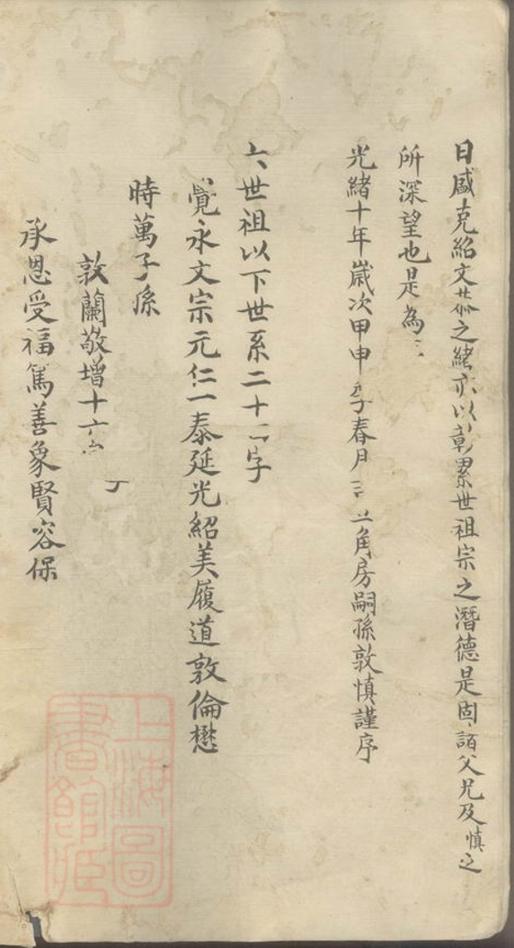 日盛克紹文恭之緒亦以彰累世祖宗之潛德是固諸父兄及慎之
所深望也是為
光緒十年歲次甲申季春月 三角房嗣孫敦慎謹序
六世祖以下世系二十二字
覺永文宗元仁一泰延光紹美履道敦倫懋
時萬子孫
敦蘭敬增十六字
承恩受福篤善象賢容保
上海圖書館藏